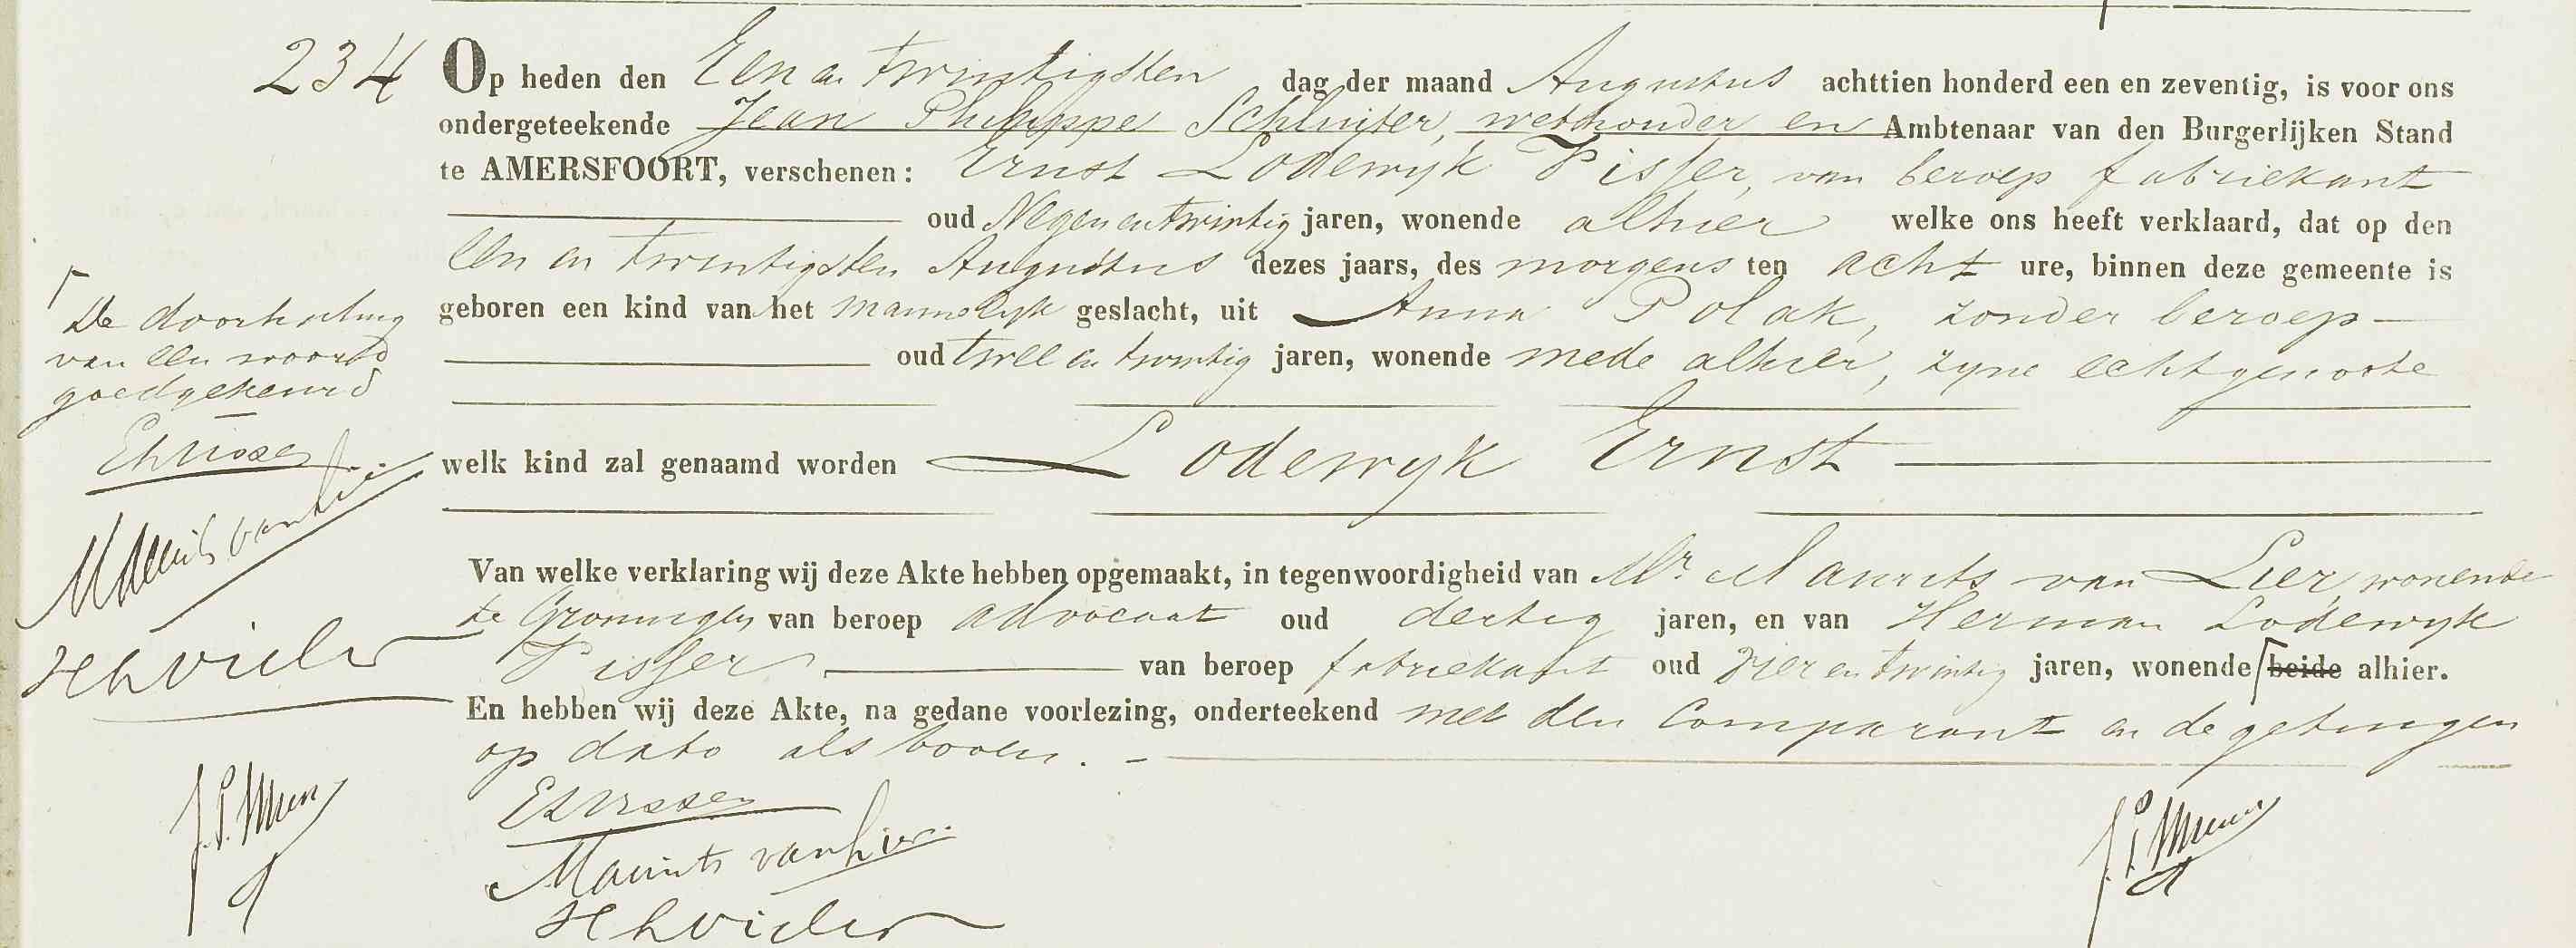 234
Op heden den Een en twintigsten dag der maand Augustus achttien honderd een en zeventig, is voor ons
ondergeteekende Jean Philippe Schluiter, wethouder en Ambtenaar van den Burgerlijken Stand
te AMERSFOORT, verschenen: Ernst Lodewyk Visser, van beroep fabriekant
oud Negen en twintig jaren, wonende alhier welke ons heeft verklaard, dat op den
een en twintigsten Augustus dezes jaars, des morgens ten acht ure, binnen deze gemeente is
geboren een kind van het mannelyk geslacht, uit Anna Polak, zonder beroep
oud twee en twintig jaren, wonende mede alhier, zyne echtgenoote
welk kind zal genaamd worden Lodewyk Ernst
Van welke verklaring wij deze Akte hebben opgemaakt, in tegenwoordigheid van Mr. Maurits van Lier, wonende
te Groningen van beroep advocaat oud dertig jaren, en van Herman Lodewyk
Visser van beroep fabriekant oud Vier en twintig jaren, wonende beide alhier.
En hebben wij deze Akte, na gedane voorlezing, onderteekend met den Comparant en de getuigen
op dato als boven.
EL Visser
Maurits van Lier
H L Visser
De doorhaling
van een woord
goedgekeurd
EL Visser
Maurits van Lier
H L Visser